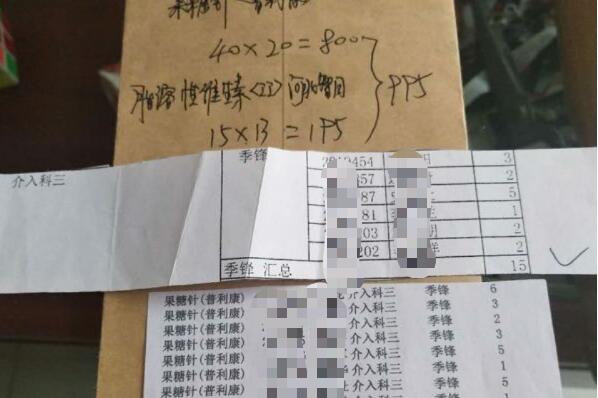 果糖针 普利康
40×20=800
脂溶性维臻<II> 河北智同
995
15×13=195
介入科三
季锋
454 3
457 2
87 5
81 1
03 2
202 2
季锋 汇总 15
果糖针(普利康) 介入科三 季锋 6
果糖针(普利康) 介入科三 季锋 3
果糖针(普利康) 介入科三 季锋 2
果糖针(普利康) 介入科三 季锋 3
果糖针(普利康) 介入科三 季锋 5
果糖针(普利康) 介入科三 季锋 1
果糖针(普利康) 介入科三 季锋 5
果糖针(普利康) 介入科三 季锋 1